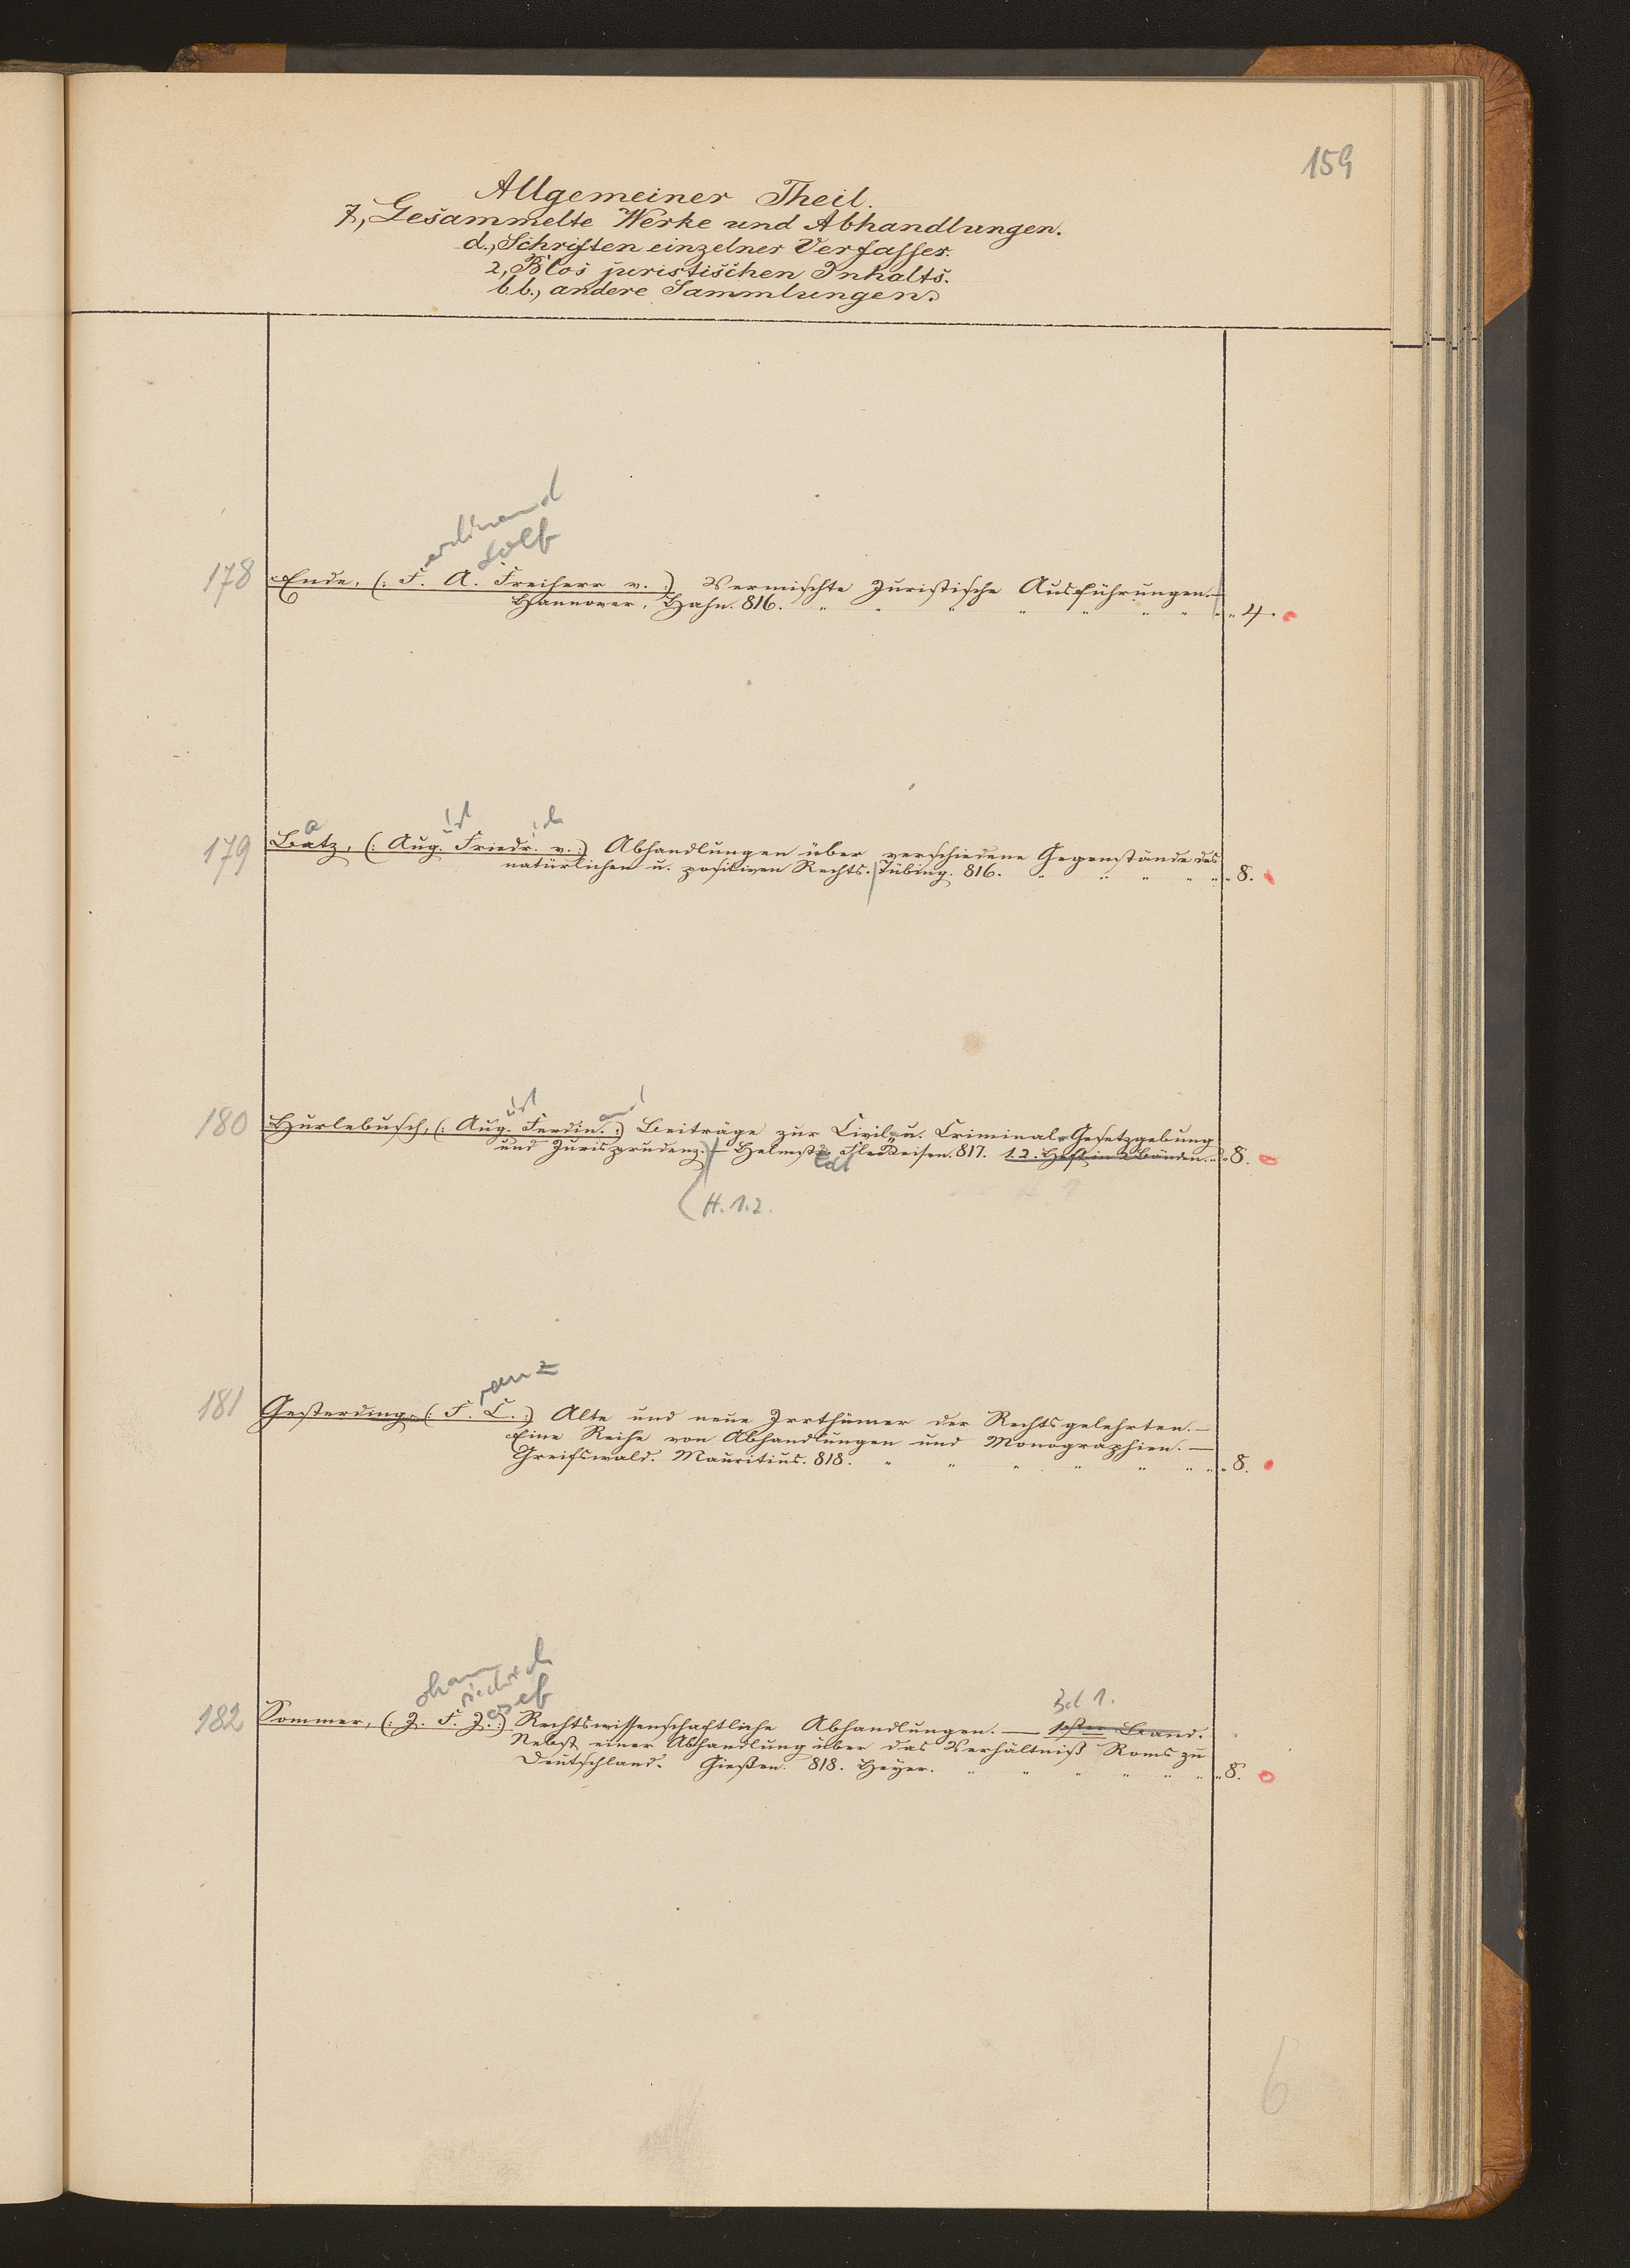 159
Allgemeiner Theil.
7, Gesammelte Werke und Abhandlungen.
d., Schriften einzelner Verfasser.
2, Blos juristischen Inhalts.
bb., andere Sammlungen.
erdinand
dolf
178 Ende, (: F. A. Freiherr v. :) Vermischte Juristische Ausführungen.—
Hannover, Hahn. 816. „ „ „ „ „ „ „ „ 4.
a ust ich
179 Batz, (: Aug. Friedr. v. :) Abhandlungen über verschiedene Gegenstände des
natürlichen u. positiven Rechts. Tübing. 816. „ „ „ „ „ 8.
ust and
180 Hurlebusch, (: Aug. Ferdin. :) Beiträge zur Civil- u. Criminal-Gesetzgebung
und Jurisprudenz.— Helmst. Fleckeisen. 817. 1. 2. Heft in 2 Bänden. „ 8.
edt
(H. 1.2.
ranz
181 Gesterding, (: F. C. :) Alte und neue Irrthümer der Rechtsgelehrten.—
Eine Reihe von Abhandlungen und Monographien.—
Greifswald. Mauritius. 818. „ „ „ „ „ „ „ 8.
ohann
riedrich
osef
Bd 1.
182 Sommer, (: J. F. J. :) Rechtswissenschaftliche Abhandlungen. — 1ster Band.
Nebst einer Abhandlung über das Verhältniß Roms zu
Deutschland. Gießen. 818. Heyer. „ „ „ „ „ „ „ 8.
6